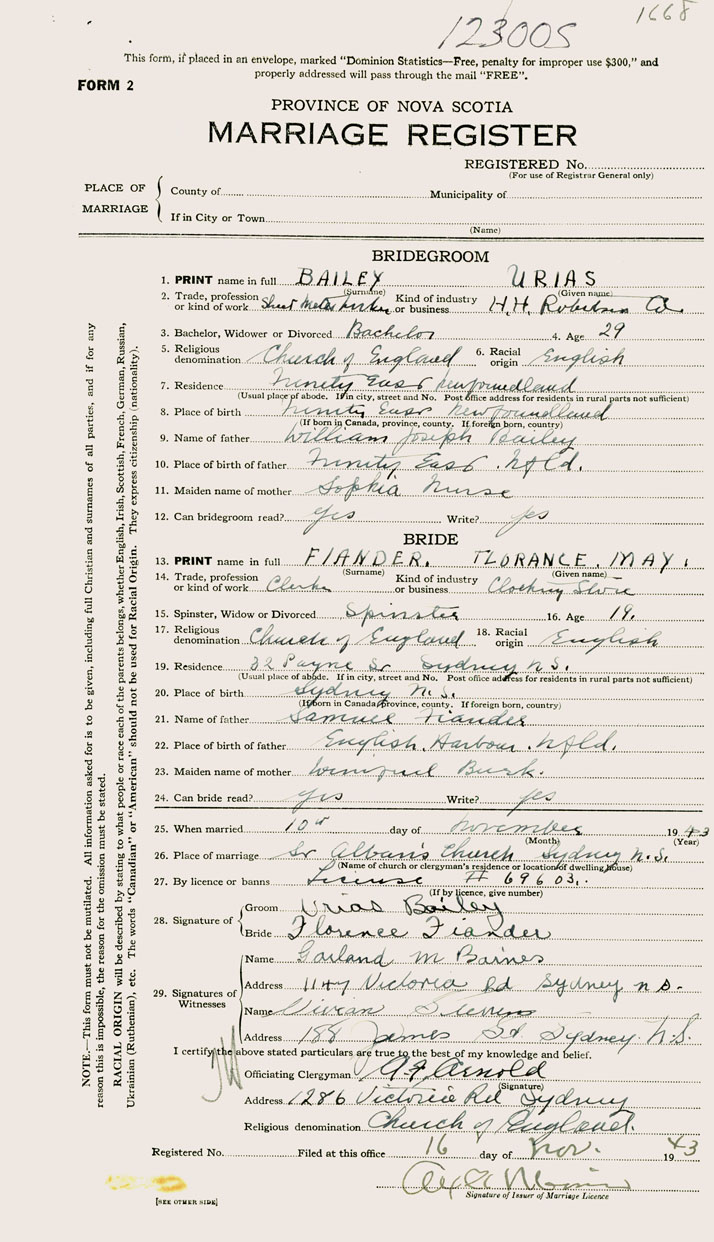 1668
123005
This form, if placed in an envelope, marked "Dominion Statistics—Free, penalty for improper use $300," and
properly addressed will pass through the mail "FREE".
FORM 2
PROVINCE OF NOVA SCOTIA
MARRIAGE REGISTER
REGISTERED No.
(For use of Registrar General only)
PLACE OF MARRIAGE
County of Municipality of
If in City or Town
(Name)
BRIDEGROOM
1. PRINT name in full BAILEY URIAS
(Surname) (Given name)
2. Trade, profession or kind of work Sheet Metal Worker Kind of industry or business H.H. Robertson Co.
3. Bachelor, Widower or Divorced Bachelor 4. Age 29
5. Religious denomination Church of England 6. Racial origin English
7. Residence Trinity East Newfoundland
(Usual place of abode. If in city, street and No. Post office address for residents in rural parts not sufficient)
8. Place of birth Trinity East Newfoundland
(If born in Canada, province, county. If foreign born, country)
9. Name of father William Joseph Bailey
10. Place of birth of father Trinity East. Nfld.
11. Maiden name of mother Sophia Nurse
12. Can bridegroom read? yes Write? yes
BRIDE
13. PRINT name in full FIANDER. FLORANCE. MAY.
(Surname) (Given name)
14. Trade, profession or kind of work Clerk Kind of industry or business Clothing Store
15. Spinster, Widow or Divorced Spinster 16. Age 19.
17. Religious denomination Church of England 18. Racial origin English
19. Residence 32 Payne St Sydney N.S.
(Usual place of abode. If in city, street and No. Post office address for residents in rural parts not sufficient)
20. Place of birth Sydney N.S.
(If born in Canada, province, county. If foreign born, country)
21. Name of father Samuel Fiander
22. Place of birth of father English Harbour. Nfld.
23. Maiden name of mother Winifred Burk.
24. Can bride read? yes Write? yes
25. When married 10th day of November 1943
(Month) (Year)
26. Place of marriage St Albans Church Sydney N.S.
(Name of church or clergyman's residence or location of dwelling house)
27. By licence or banns License # 69603.
(If by licence, give number)
28. Signature of
Groom Urias Bailey
Bride Florence Fiander
29. Signatures of Witnesses
Name Garland M Barnes
Address 1147 Victoria Rd Sydney N.S.
Name Vivian Stevens
Address 188 James St Sydney. N.S.
I certify the above stated particulars are true to the best of my knowledge and belief.
Officiating Clergyman A F Arnold
(Signature)
Address 1286 Victoria Rd Sydney
Religious denomination Church of England.
Registered No. Filed at this office 16 day of Nov. 1943
Signature of Issuer of Marriage Licence
[SEE OTHER SIDE]
NOTE.—This form must not be mutilated. All information asked for is to be given, including full Christian and surnames of all parties, and if for any
reason this is impossible, the reason for the omission must be stated.
RACIAL ORIGIN will be described by stating to what people or race each of the parents belongs, whether English, Irish, Scottish, French, German, Russian,
Ukrainian (Ruthenian), etc. The words "Canadian" or "American" should not be used for Racial Origin. They express citizenship (nationality).